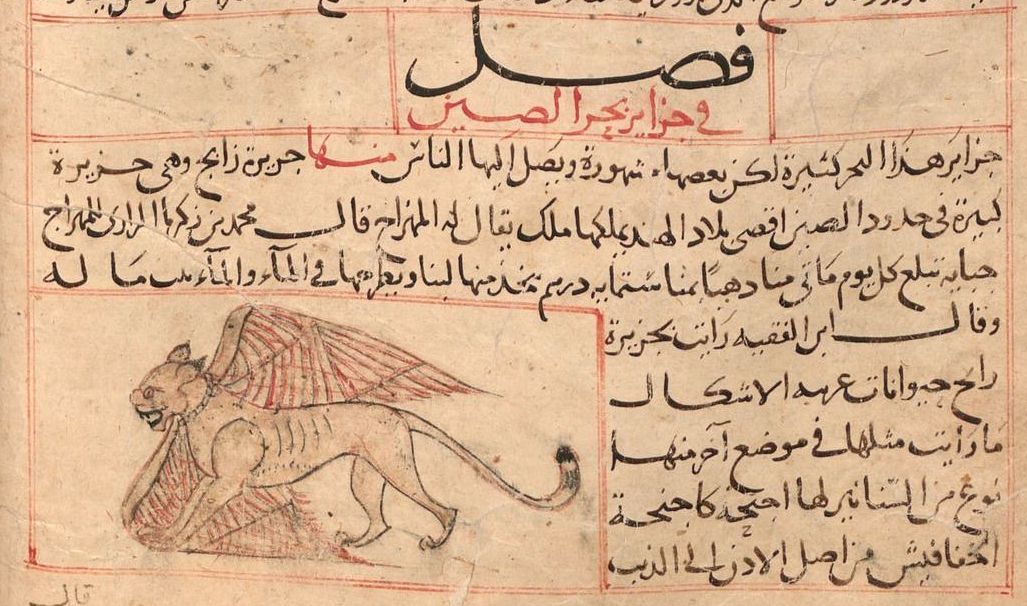 فصل
في جزاير بحر الصين
جزاير هذا البحر كثيرة لكن بعضها مشهورة ويصل اليها الناس منها جزيرة زابج وهى جزيرة
كبيرة في حدود الصين اقصى بلاد الهند يملكها ملك يقال له المهراج قال محمد بن زكريا الرازى للمهراج
جباية تبلغ كل يوم ماتى منا ذهبا بمنا ستمايه درهم يتخذ منها لبنا ويطرحها في الماء والماء بيت ماله
وقال ابن الفقيه رايت بجزيرة
رابج حيوانات غريبه الاشكال
ما رايت مثلها في موضع آخر منها
نوع من السنانير لها اجنحة كاجنحة
الخفافيش من اصل الاذن الى الذنب
قال